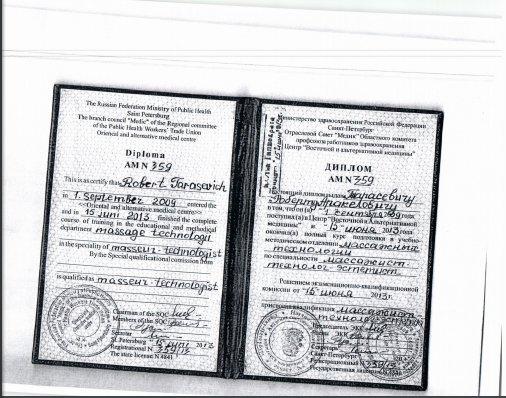 The Russian Federation Ministry of Public Health
Saint Petersburg
The branch council "Medic" of the Regional committee
of the Public Health Workers' Trade Union
Oriencal and alternative medical centre
Diploma
AM N 359
This is as certify that Robert Tarasevich
in 1. September 2009 entered the
<<Oriencal and alternative medical centre>>
and in 15 iuni 2013 finished the complete
course of training in the educational and methodical
department massage technologii
in the speciality of masseur-technologist
By the Special qualificational comission from
is qualified as masseur-technologist
Chairman of the SQC
Members of the SQC
Secretar
St. Petersburg 2013
Registrational N 359/13
The state licence N 4841
Министерство здравоохранения Российской Федерации
Санкт-Петербург
Отраслевой Совет "Медик" Областного комитета
профсоюза работников здравоохранения
Центр "Восточной и альтернативной медицины"
ДИПЛОМ
AM N 359
Настоящий диплом выдан Тарасевичу
Роберту
в том, что он(а) 1 сентября 2009 года
поступил(а) в Центр "Восточной и Альтернативной
медицины" и 15 июня 2013 года
окончил(а) полный курс подготовки в учебно-
методическом отделении массажных
технологии
по специальности массажист
технолог-эстетист.
Решением экзаменационно-квалификационной
комиссии от 15 июня 2013 г.
присвоена квалификация массажист
технолог
Председатель ЭКК
Секретарь
Санкт-Петербург
Регистрационный N 359/13
Государственная лицензия N